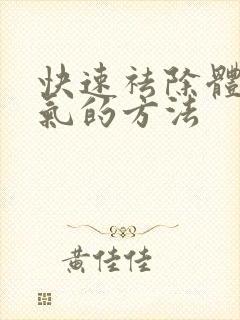 快速祛除體
氣的方法
黃佳佳